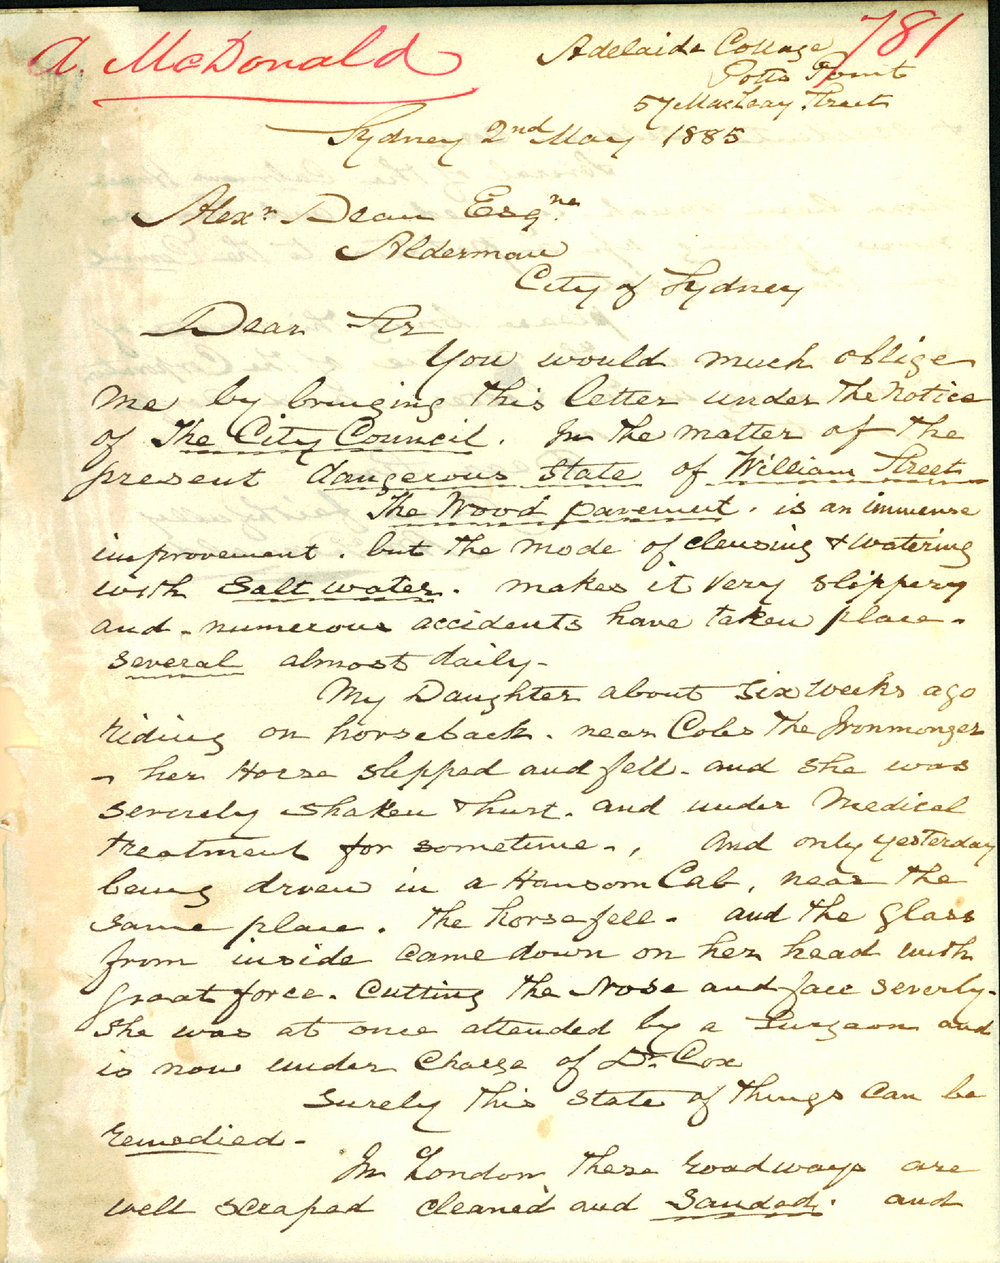 A. McDonald
781
Adelaide Cottage
Potts Point
57 Macleay Street
Sydney 2nd May 1885
Alexr Dean Esqre
Alderman
City of Sydney
Dear Sir
You would much oblige
me by bringing this letter under the Notice
of The City Council. In the matter of the
present dangerous state of William Street
The Wood pavement. is an immense
improvement. but the mode of clensing & watering
with Salt water. makes it very slippery
and - numerous accidents have taken place -
several almost daily -
My Daughter about six weeks ago
riding on horseback. near Coles the Ironmonger
- her Horse slipped and fell - and she was
severely shaken & hurt. and under Medical
treatment for sometime -, and only yesterday
being driven in a Hansom Cab, near the
same place. the horse fell - and the glass
from inside came down on her head with
great force. Cutting the Nose and face severly -
She was at once attended by a Surgeon and
is now under Charge of Dr Cox
Surely this state of things can be
remedied -
In London these roadways are
well scraped cleaned and Sanded. and